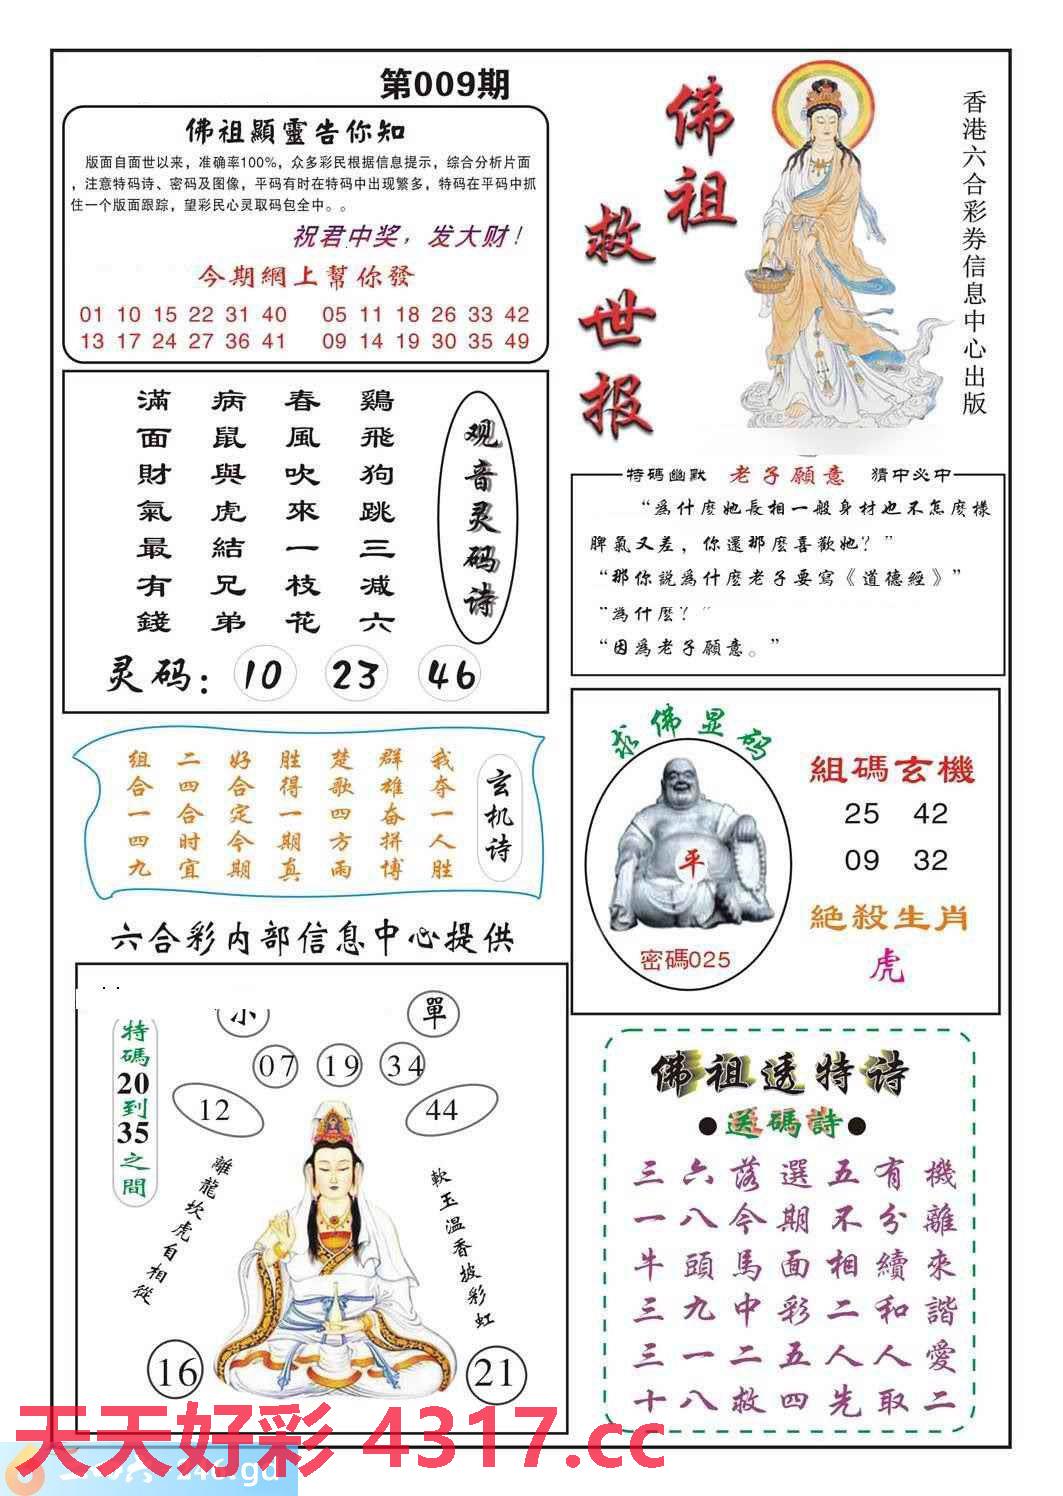 第009期
佛祖顯靈告你知
版面自面世以来，准确率100%，众多彩民根据信息提示，综合分析片面
，注意特码诗、密码及图像，平码有时在特码中出现繁多，特码在平码中抓
住一个版面跟踪，望彩民心灵取码包全中。。
祝君中奖，发大财！
今期網上幫你發
01 10 15 22 31 40 05 11 18 26 33 42
13 17 24 27 36 41 09 14 19 30 35 49
佛祖
救世报
香港六合彩券信息中心出版
观音灵码诗
鷄飛狗跳三减六
春風吹來一枝花
病鼠與虎結兄弟
滿面財氣最有錢
灵码：10 23 46
特碼幽默 老子願意 猜中必中
“爲什麼她長相一般身材也不怎麼樣
脾氣又差，你還那麼喜歡她？”
“那你説爲什麼老子要寫《道德經》”
“爲什麼？”
“因爲老子願意。”
玄机诗
我夺一人胜
群雄奋拼博
楚歌四方雨
胜得一期真
好合定今期
二四合时宜
组合一四九
求佛显码
平
密碼025
組碼玄機
25 42
09 32
絶殺生肖
虎
六合彩内部信息中心提供
單
07 19 34
12 44
特碼20到35之間
離龍坎虎自相從
軟玉温香披彩虹
16 21
佛祖透特诗
●送碼詩●
三六落選五有機
一八今期不分離
牛頭馬面相續來
三九中彩二和諧
三一二五人人愛
十八救四先取二
天天好彩 4317.cc